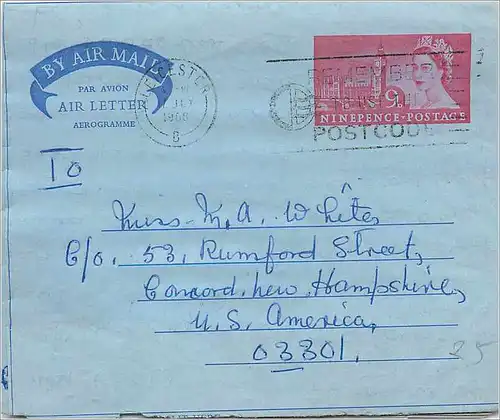 BY AIR MAIL
PAR AVION
AIR LETTER
AEROGRAMME
LEICESTER
JLY
1968
8
REMEMBER
POSTCODE
9D
NINEPENCE·POSTAGE
To
Miss. M. A. White,
C/o. 53, Rumford Street,
Concord, New Hampshire,
U. S. America,
03301.
35